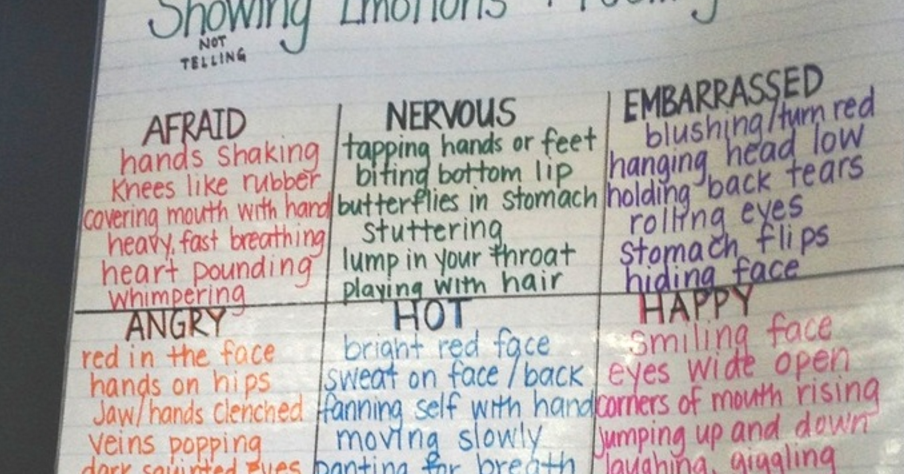 Showing Emotions
NOT
TELLING
AFRAID
hands shaking
Knees like rubber
covering mouth with hand
heavy, fast breathing
heart pounding
whimpering
NERVOUS
tapping hands or feet
biting bottom lip
butterflies in stomach
stuttering
lump in your throat
playing with hair
EMBARRASSED
blushing/turn red
hanging head low
holding back tears
rolling eyes
stomach flips
hiding face
ANGRY
red in the face
hands on hips
Jaw/hands clenched
veins popping
dark squinted eyes
HOT
bright red face
sweat on face/back
fanning self with hand
moving slowly
panting for breath
HAPPY
smiling face
eyes wide open
corners of mouth rising
jumping up and down
laughing, giggling